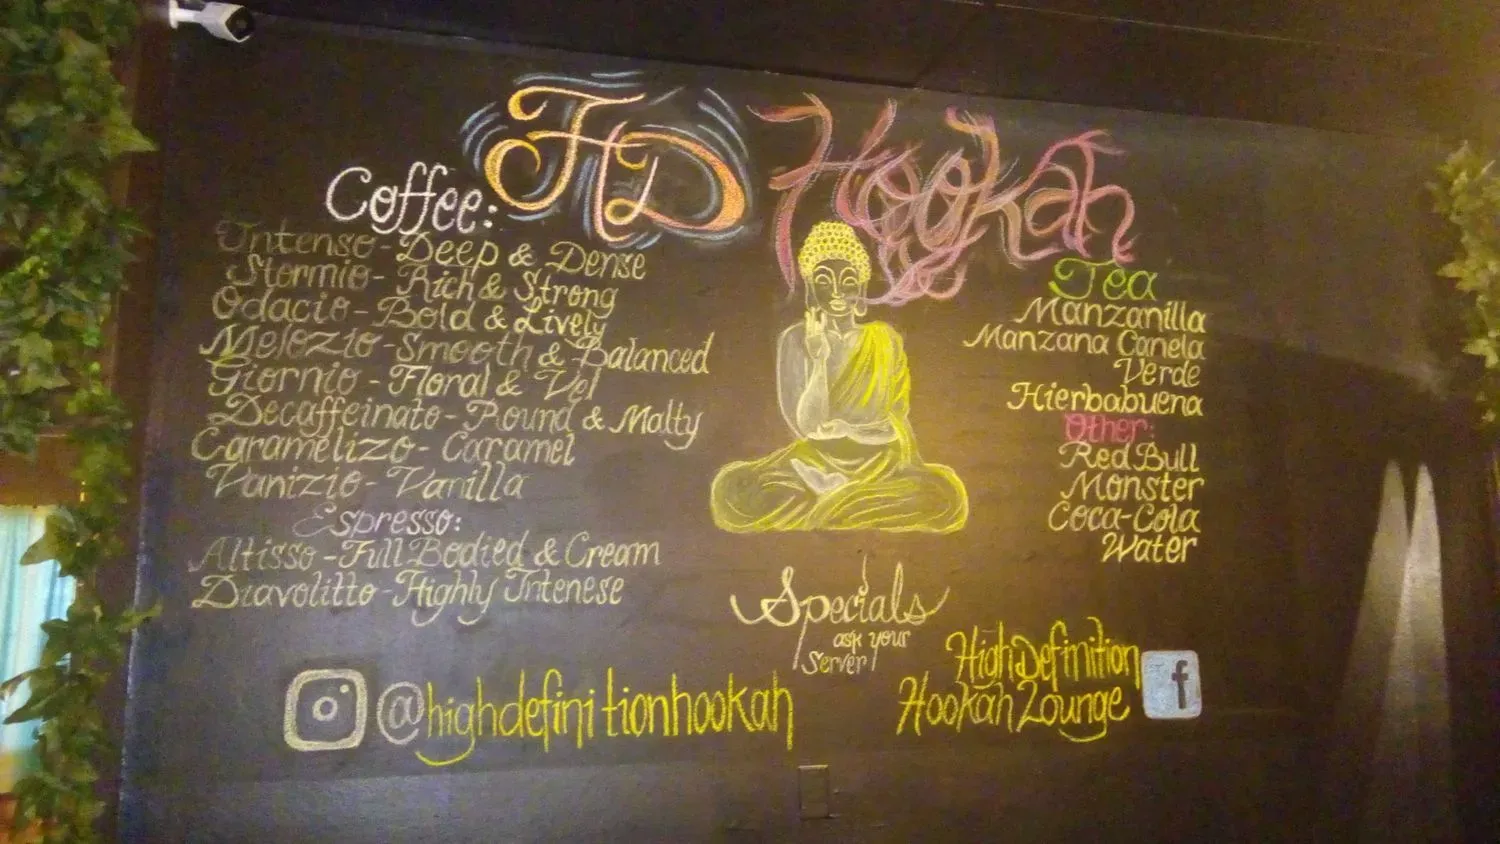 HD Hookah
Coffee:
Intenso - Deep & Dense
Stormio - Rich & Strong
Odacio - Bold & Lively
Melozio - Smooth & Balanced
Giornio - Floral & Vel
Decaffeinato - Round & Malty
Caramelizo - Caramel
Vanizio - Vanilla
Espresso:
Altisso - Full Bodied & Cream
Diavolitto - Highly Intenese
Tea
Manzanilla
Manzana Canela
Verde
Hierbabuena
Other:
Red Bull
Monster
Coca-Cola
Water
Specials
ask your
Server
@highdefinitionhookah
High Definition
Hookah Lounge
f